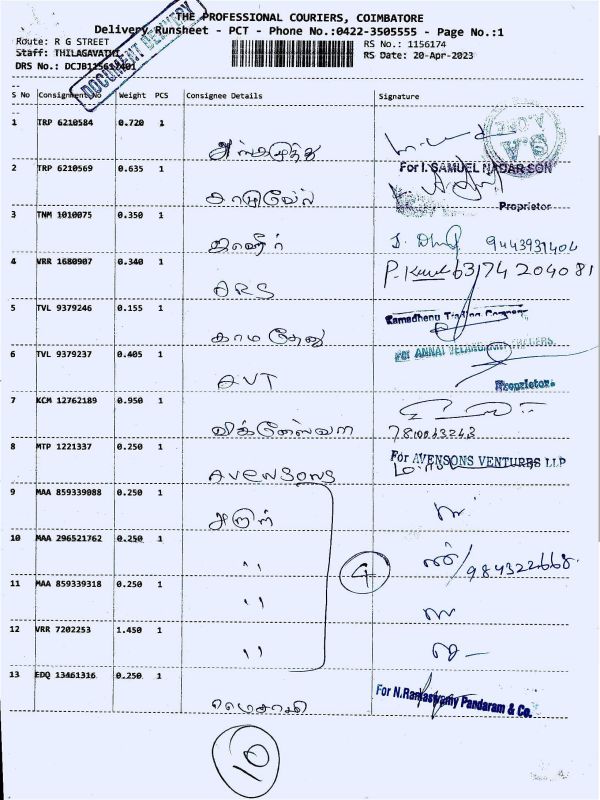 THE PROFESSIONAL COURIERS, COIMBATORE
Delivery Runsheet - PCT - Phone No.:0422-3505555 - Page No.:1
Route: R G STREET RS No.: 1156174
Staff: THILAGAVATHI RS Date: 20-Apr-2023
DRS No.: DCJB115617401
DOCUMENT DELIVERY
S No Consignment No Weight PCS Consignee Details Signature
1 TRP 6210584 0.720 1
S.A
2 TRP 6210569 0.635 1 For I. SAMUEL NADAR SON
காயுவேல்
Proprietor
3 TNM 1010075 0.350 1
9443931404
4 VRR 1680907 0.340 1
ARS 63174 204081
5 TVL 9379246 0.155 1 Kamadhenu Trading Company
காமதேனு
6 TVL 9379237 0.405 1 For ANNAI VELANKANNI
AVT Proprietor
7 KCM 12762189 0.950 1
விக்னேஸ்வரா
8 MTP 1221337 0.250 1 For AVENSONS VENTURES LLP
AVENSONS
9 MAA 859339088 0.250 1
அருள்
10 MAA 296521762 0.250 1
,, 984322668
11 MAA 859339318 0.250 1
,,
4
12 VRR 7202253 1.450 1
,,
13 EDQ 13461316 0.250 1 For N.Ramaswamy Pandaram & Co.
10